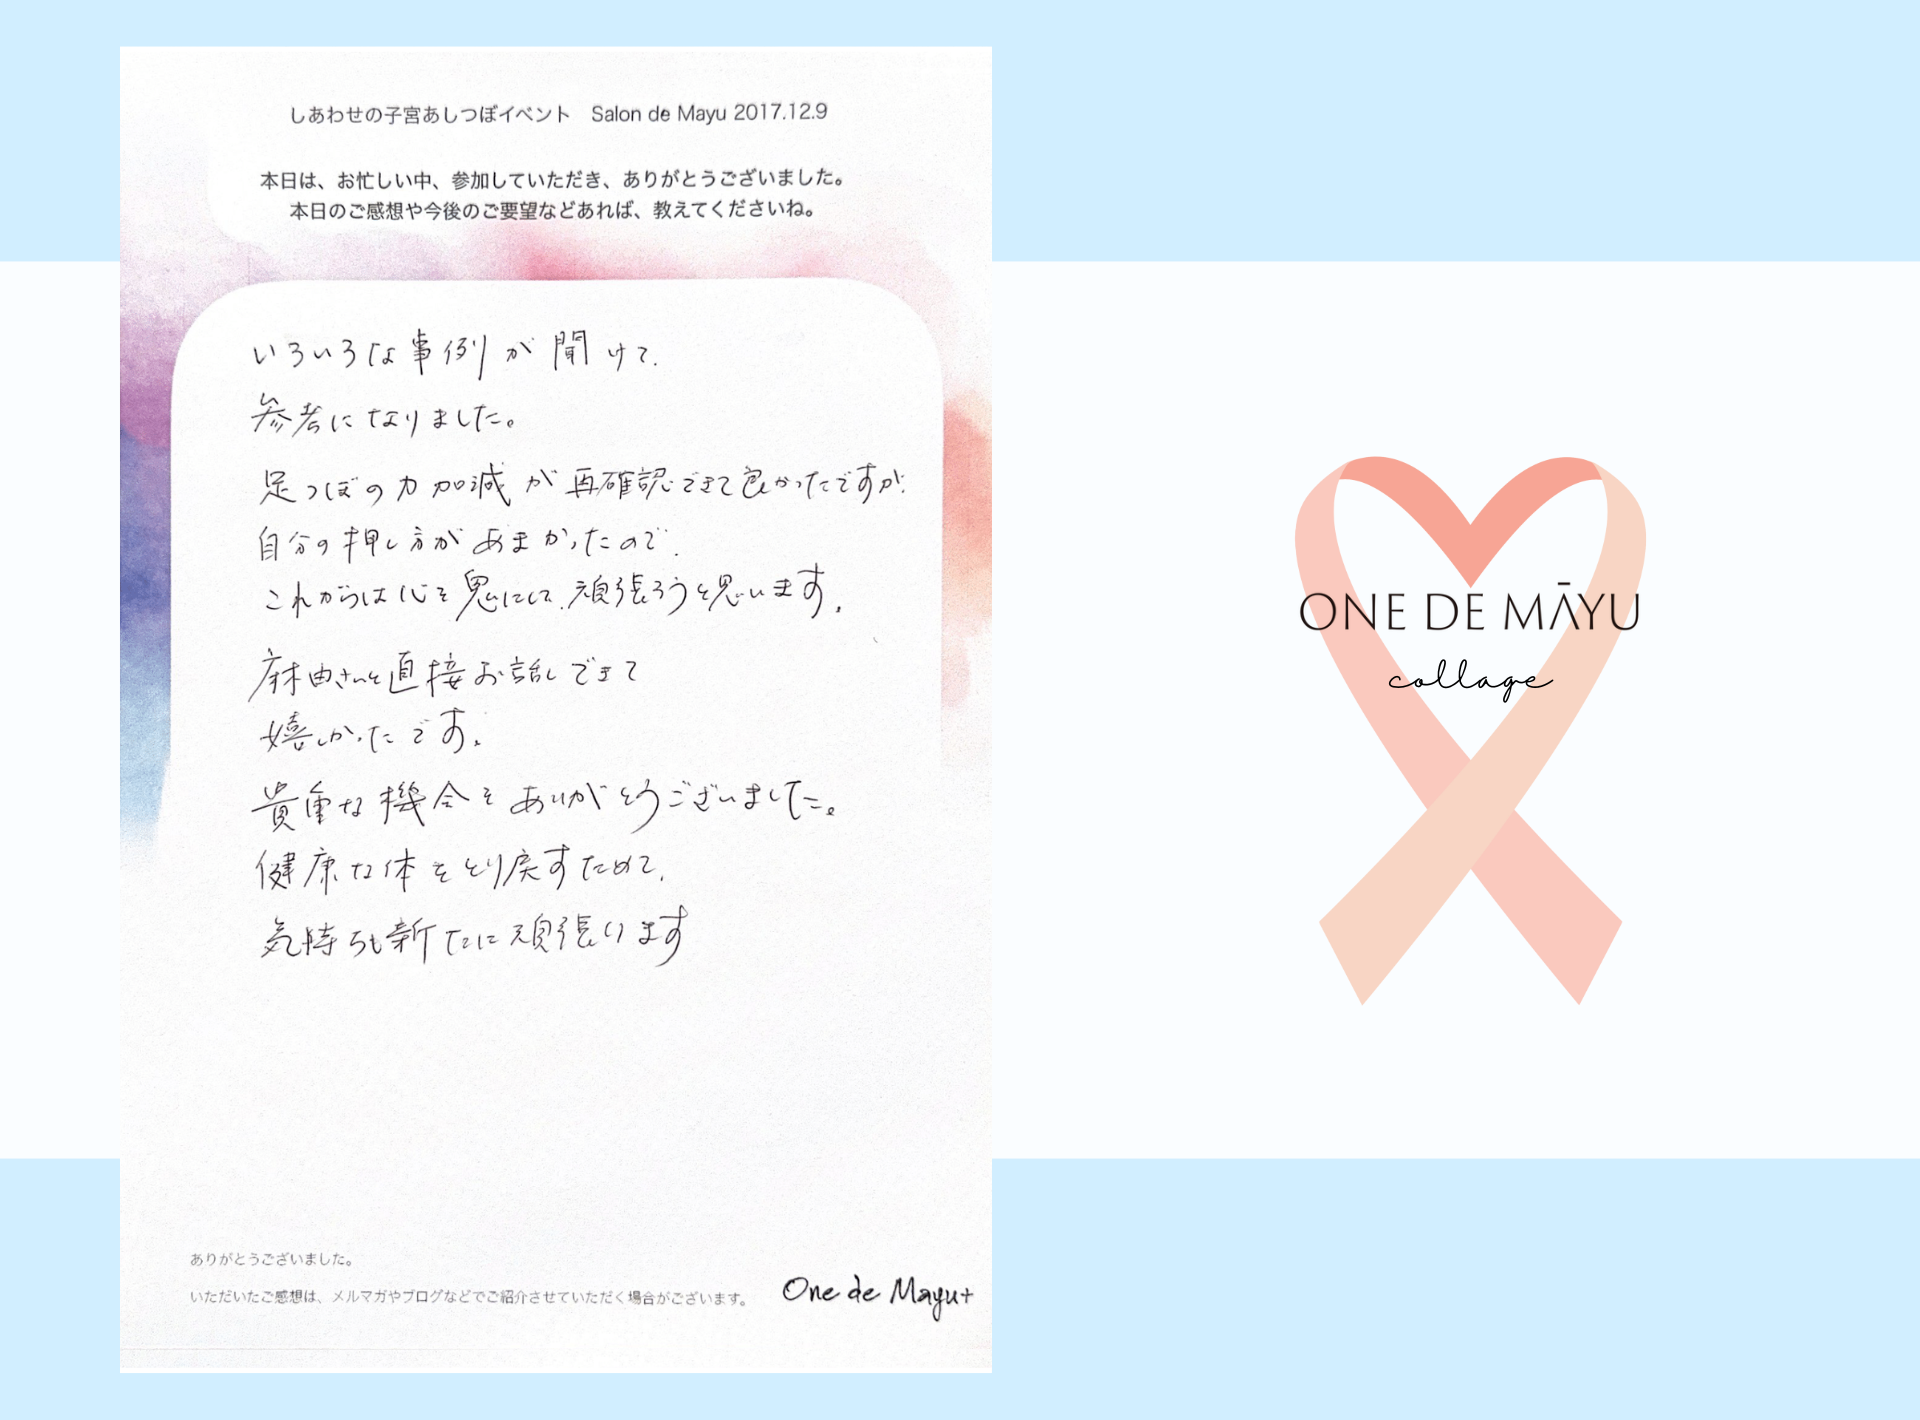 しあわせの子宮あしつぼイベント　Salon de Mayu 2017.12.9
本日は、お忙しい中、参加していただき、ありがとうございました。
本日のご感想や今後のご要望などあれば、教えてくださいね。
いろいろな事例が聞けて、
参考になりました。
足つぼの力加減が再確認できて良かったですが、
自分の押し方があまかったので、
これからは心を鬼にして、頑張ろうと思います。
麻由さんと直接お話しできて
嬉しかったです。
貴重な機会をありがとうございました。
健康な体をとり戻すためて、
気持ちも新たに頑張ります
ありがとうございました。
いただいたご感想は、メルマガやブログなどでご紹介させていただく場合がございます。
One de Mayu+
ONE DE MĀYU
collage